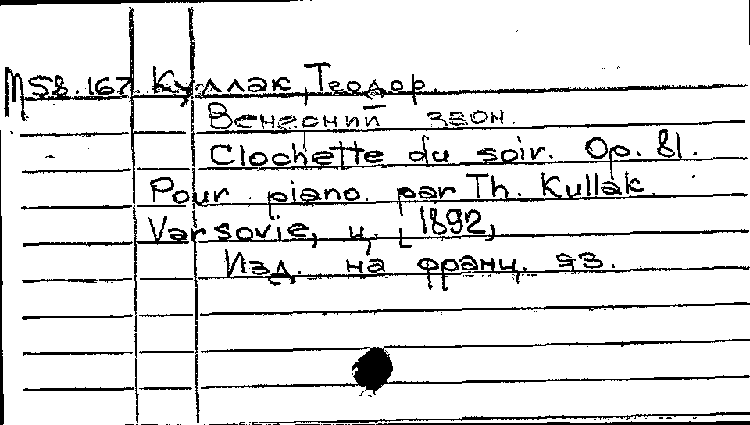 М 58.167. Куллак, Теодор.
Вечерний звон.
Clochette du soir. Op. 81.
Pour piano par Th. Kullak.
Varsovie, ц. [1892,
Изд. на франц. яз.